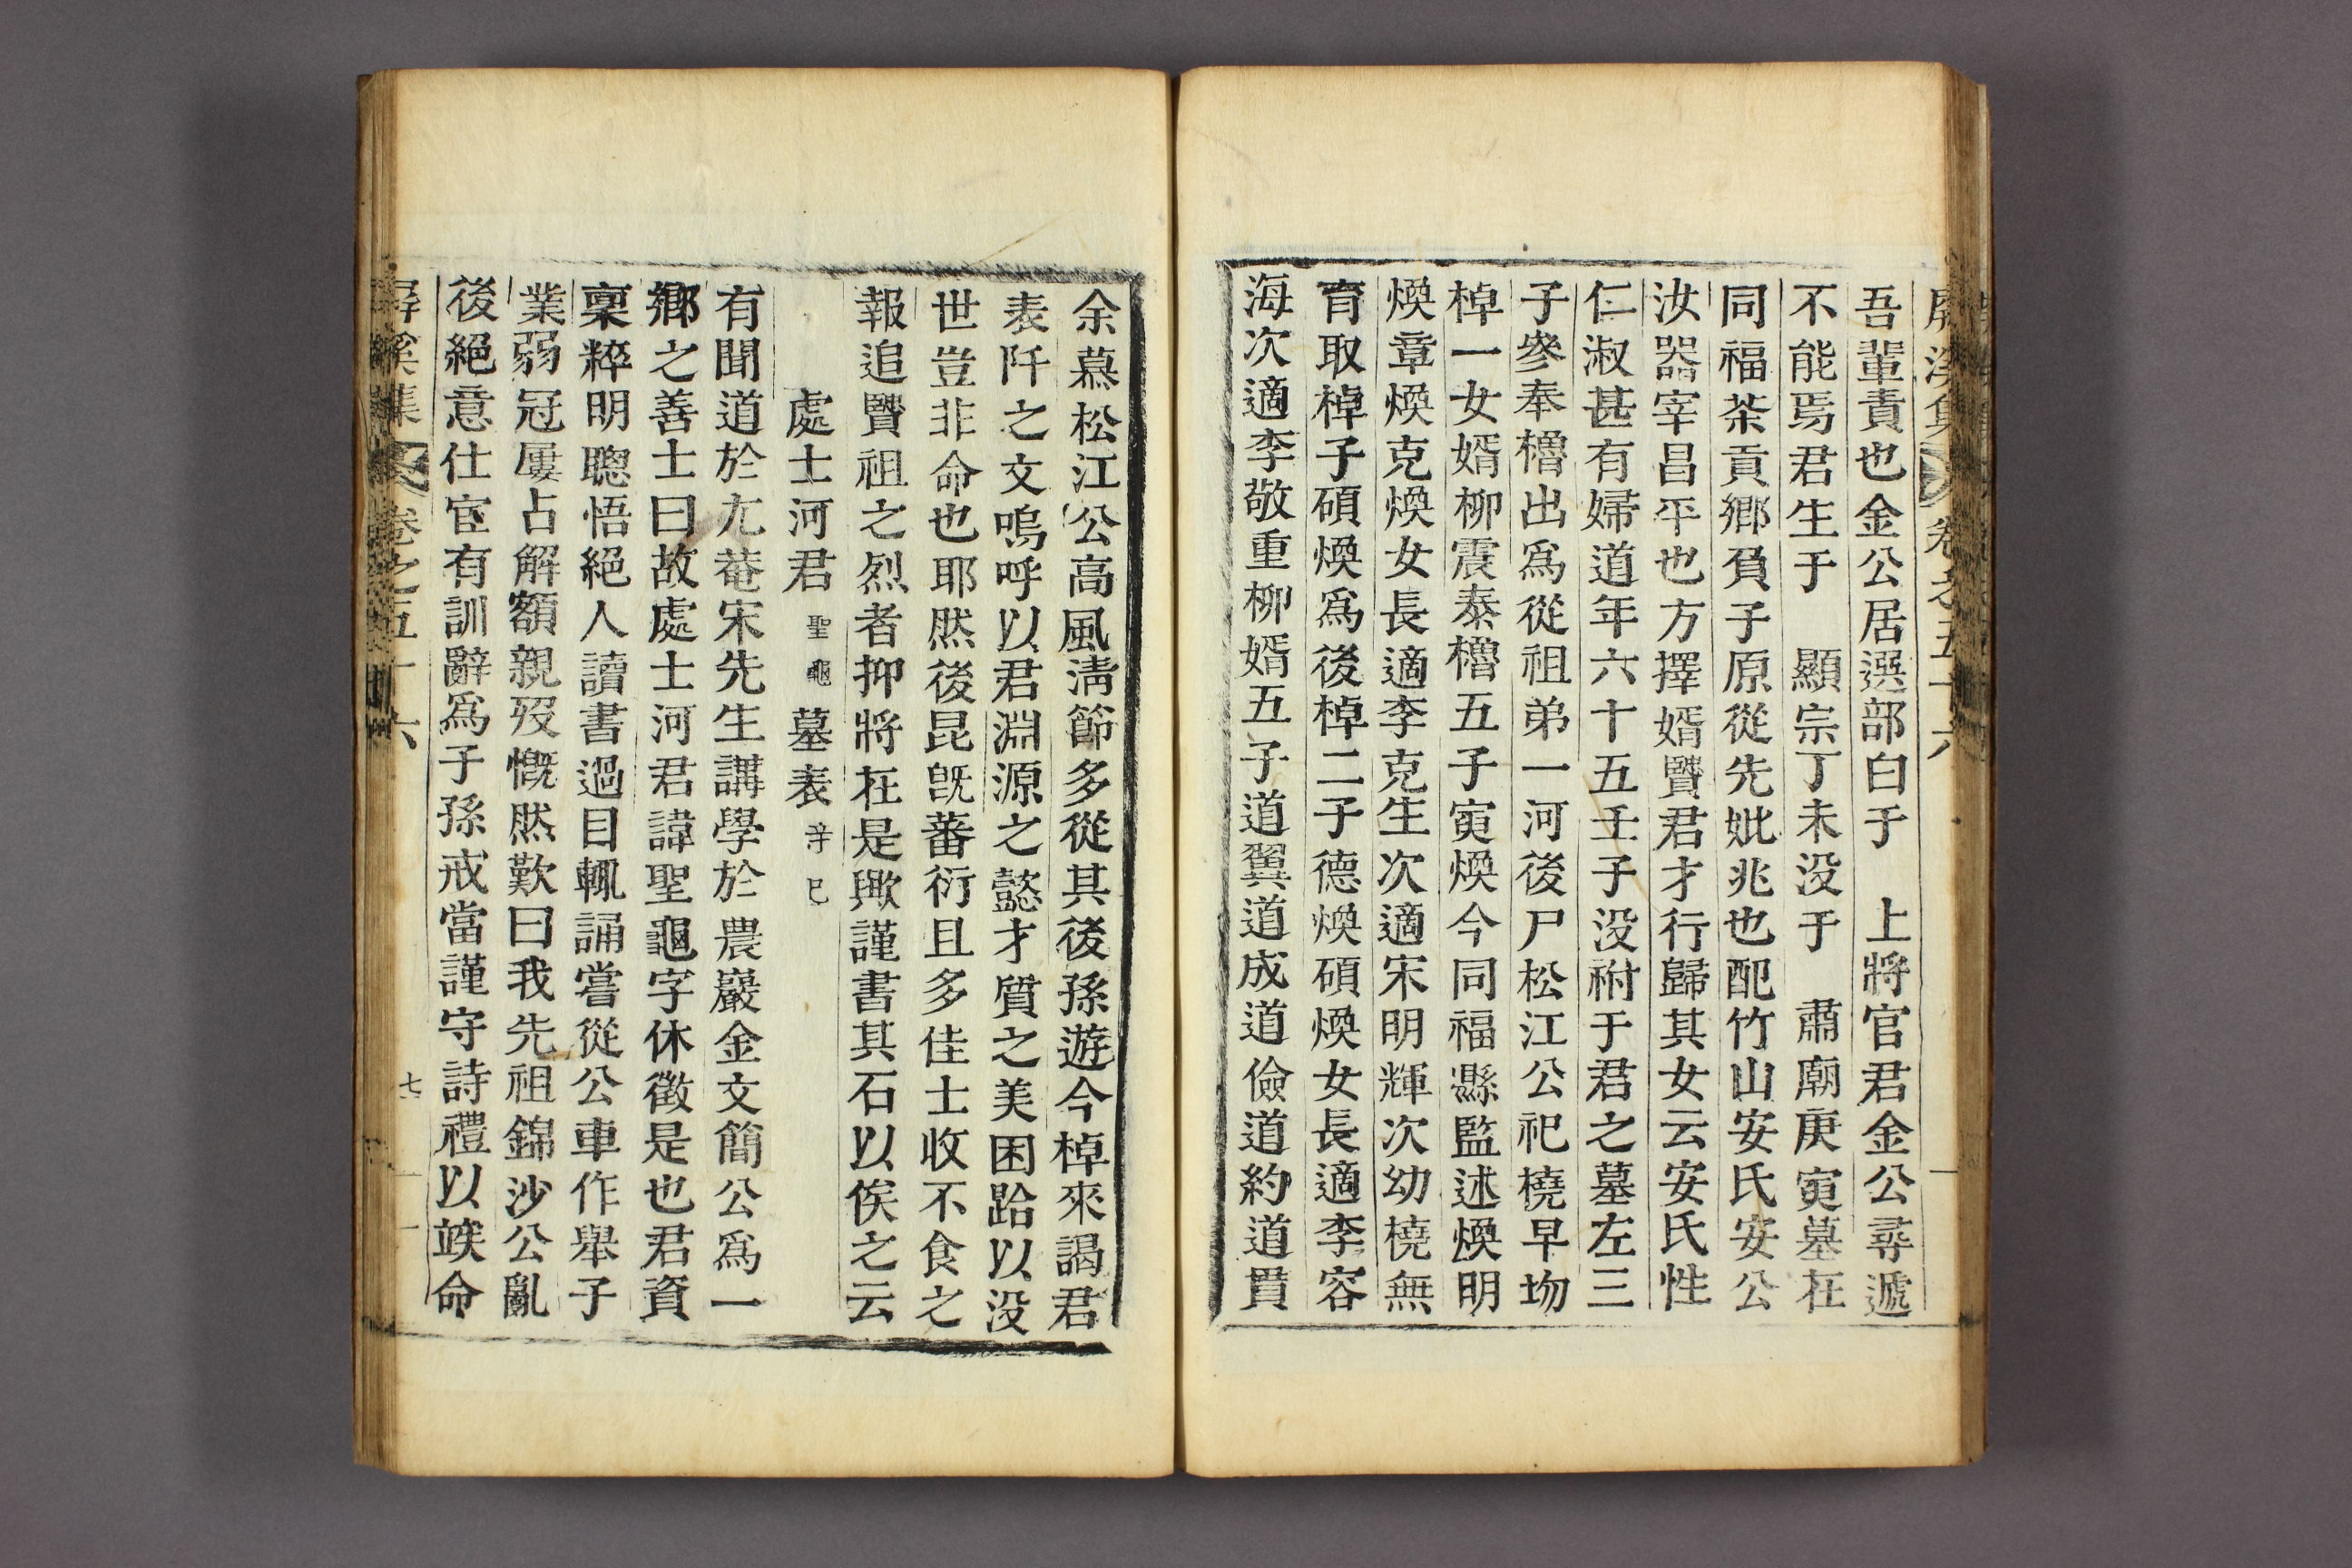 屛溪集 卷之五十六
吾輩責也金公居選部白于 上將官君金公尋遞
不能焉君生于 顯宗丁未没于 肅廟庚寅墓在
同福茶貢鄉負子原從先妣兆也配竹山安氏安公
汝器宰昌平也方擇婿賢君才行歸其女云安氏性
仁淑甚有婦道年六十五壬子没祔于君之墓左三
子參奉櫓出爲從祖弟一河後尸松江公祀橈早歾
棹一女婿柳震泰櫓五子寅煥今同福縣監述煥明
煥章煥克煥女長適李克生次適宋明輝次幼橈無
育取棹子碩煥爲後棹二子德煥碩煥女長適李容
海次適李敬重柳婿五子道翼道成道儉道約道貫
余慕松江公高風淸節多從其後孫遊今棹來謁君
表阡之文嗚呼以君淵源之懿才質之美困跲以没
世豈非命也耶然後昆旣蕃衍且多佳士收不食之
報追賢祖之烈者抑將在是歟謹書其石以俟之云
處士河君 聖龜 墓表 辛巳
有聞道於尤菴宋先生講學於農巖金文簡公爲一
鄉之善士曰故處士河君諱聖龜字休徵是也君資
稟粹明聰悟絕人讀書過目輒誦嘗從公車作舉子
業弱冠屢占解額親歿慨然歎曰我先祖錦沙公亂
後絕意仕宦有訓辭爲子孫戒當謹守詩禮以竢命
屛溪集 卷之五十六 七